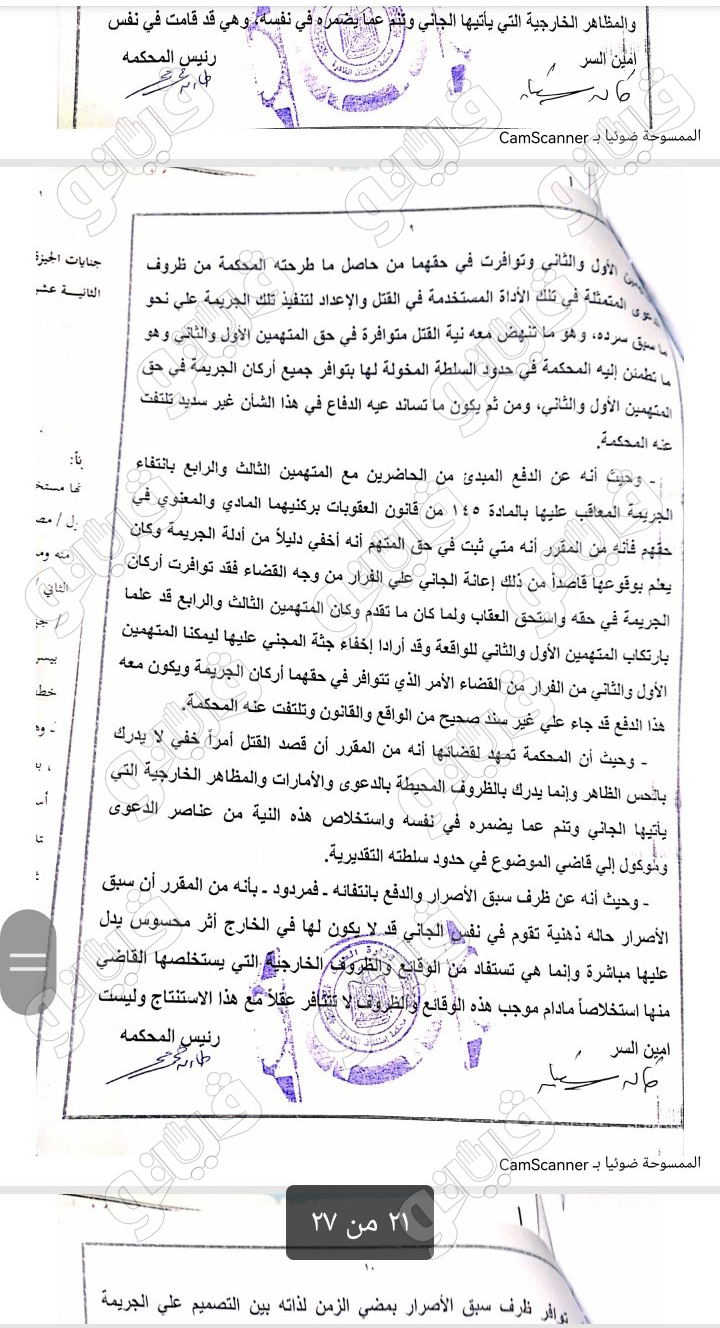 والمظاهر الخارجية التي يأتيها الجاني وتنم عما يضمره في نفسه، وهي قد قامت في نفس
امين السر
رئيس المحكمه
الممسوحة ضوئيا بـ CamScanner
٩
الأول والثاني وتوافرت في حقهما من حاصل ما طرحته المحكمة من ظروف
الدعوى المتمثلة في تلك الأداة المستخدمة في القتل والإعداد لتنفيذ تلك الجريمة علي نحو
ما سبق سرده، وهو ما تنهض معه نية القتل متوافرة في حق المتهمين الأول والثاني وهو
ما تطمئن إليه المحكمة في حدود السلطة المخولة لها بتوافر جميع أركان الجريمة في حق
المتهمين الأول والثاني، ومن ثم يكون ما تساند عيه الدفاع في هذا الشأن غير سديد تلتفت
عنه المحكمة.
- وحيث أنه عن الدفع المبدئ من الحاضرين مع المتهمين الثالث والرابع بانتفاء
الجريمة المعاقب عليها بالمادة ١٤٥ من قانون العقوبات بركنيهما المادي والمعنوي في
حقهم فأنه من المقرر أنه متي ثبت في حق المتهم أنه أخفي دليلاً من أدلة الجريمة وكان
يعلم بوقوعها قاصداً من ذلك إعانة الجاني علي الفرار من وجه القضاء فقد توافرت أركان
الجريمة في حقه واستحق العقاب ولما كان ما تقدم وكان المتهمين الثالث والرابع قد علما
بارتكاب المتهمين الأول والثاني للواقعة وقد أرادا إخفاء جثة المجني عليها ليمكنا المتهمين
الأول والثاني من الفرار من القضاء الأمر الذي تتوافر في حقهما أركان الجريمة ويكون معه
هذا الدفع قد جاء علي غير سند صحيح من الواقع والقانون وتلتفت عنه المحكمة.
- وحيث أن المحكمة تمهد لقضائها أنه من المقرر أن قصد القتل أمراً خفي لا يدرك
بالحس الظاهر وإنما يدرك بالظروف المحيطة بالدعوى والأمارات والمظاهر الخارجية التي
يأتيها الجاني وتنم عما يضمره في نفسه واستخلاص هذه النية من عناصر الدعوى
وموكول إلي قاضي الموضوع في حدود سلطته التقديرية.
- وحيث أنه عن ظرف سبق الأصرار والدفع بانتفائه - فمردود - بأنه من المقرر أن سبق
الأصرار حاله ذهنية تقوم في نفس الجاني قد لا يكون لها في الخارج أثر محسوس يدل
عليها مباشرة وإنما هي تستفاد من الوقائع والظروف الخارجية التي يستخلصها القاضي
منها استخلاصاً مادام موجب هذه الوقائع والظروف لا تتنافر عقلاً مع هذا الاستنتاج وليست
امين السر
رئيس المحكمه
جنايات الجيزة
الثانيـة عشر
الثاني
الممسوحة ضوئيا بـ CamScanner
٢١ من ٢٧
١٠
توافر ظرف سبق الأصرار بمضي الزمن لذاته بين التصميم علي الجريمة